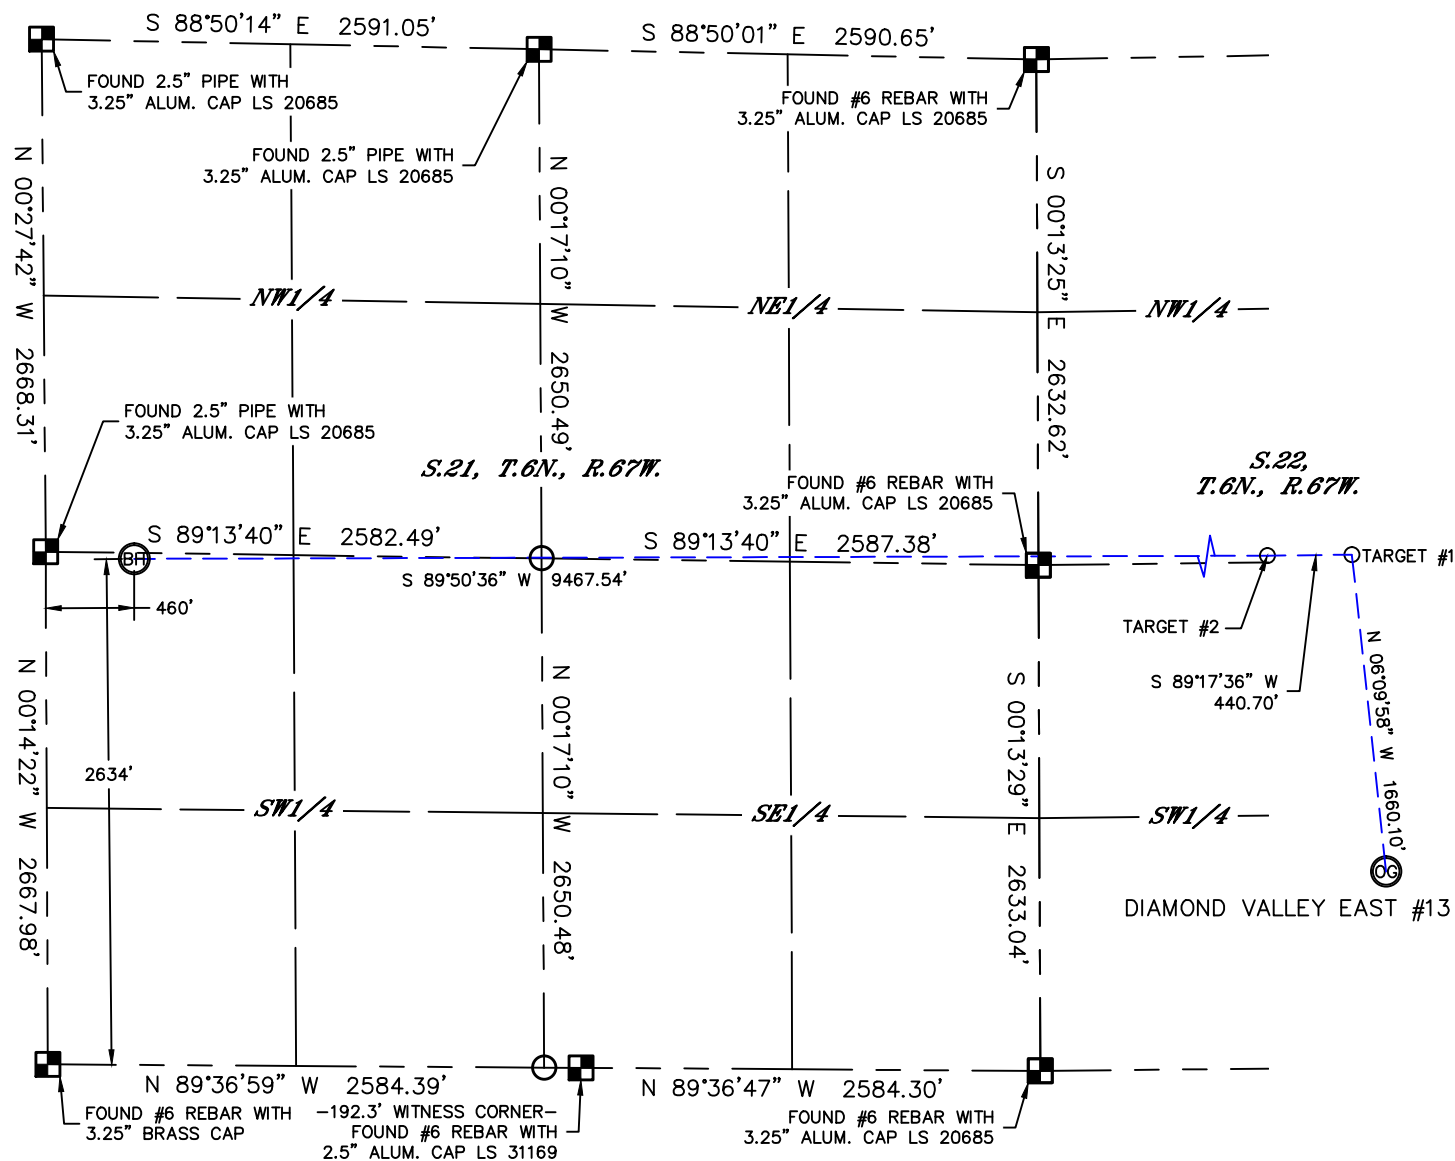 S 88°50'14" E 2591.05'
S 88°50'01" E 2590.65'
FOUND 2.5" PIPE WITH
3.25" ALUM. CAP LS 20685
FOUND 2.5" PIPE WITH
3.25" ALUM. CAP LS 20685
FOUND #6 REBAR WITH
3.25" ALUM. CAP LS 20685
N 00°27'42" W 2668.31'
N 00°17'10" W 2650.49'
S 00°13'25" E 2632.62'
NW1/4
NE1/4
NW1/4
FOUND 2.5" PIPE WITH
3.25" ALUM. CAP LS 20685
S.21, T.6N., R.67W.
FOUND #6 REBAR WITH
3.25" ALUM. CAP LS 20685
S.22,
T.6N., R.67W.
S 89°13'40" E 2582.49'
S 89°13'40" E 2587.38'
BH
S 89°50'36" W 9467.54'
TARGET #1
460'
TARGET #2
S 89°17'36" W
440.70'
N 06°09'58" W 1660.10'
N 00°14'22" W 2667.98'
2634'
N 00°17'10" W 2650.48'
S 00°13'29" E 2633.04'
SW1/4
SE1/4
SW1/4
OG
DIAMOND VALLEY EAST #13
N 89°36'59" W 2584.39'
N 89°36'47" W 2584.30'
FOUND #6 REBAR WITH
3.25" BRASS CAP
-192.3' WITNESS CORNER-
FOUND #6 REBAR WITH
2.5" ALUM. CAP LS 31169
FOUND #6 REBAR WITH
3.25" ALUM. CAP LS 20685